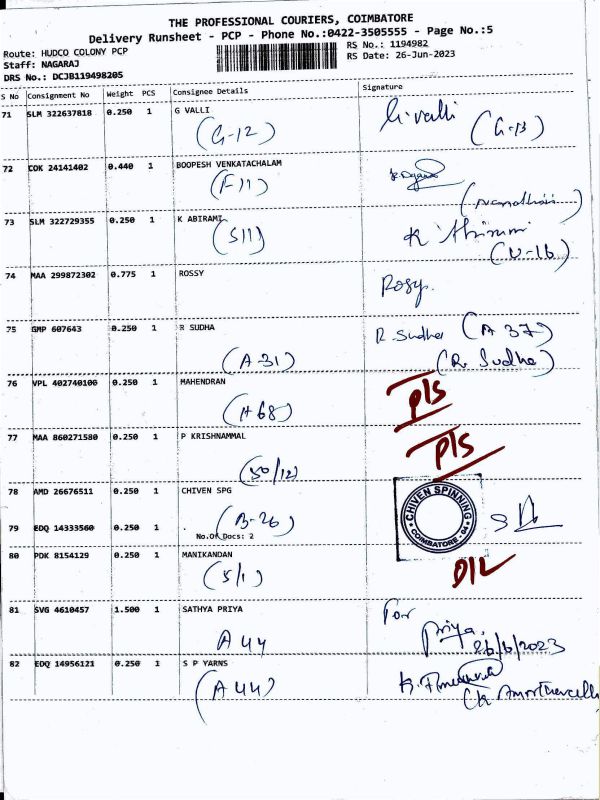 THE PROFESSIONAL COURIERS, COIMBATORE
Delivery Runsheet - PCP - Phone No.:0422-3505555 - Page No.:5
Route: HUDCO COLONY PCP
RS No.: 1194982
Staff: NAGARAJ
RS Date: 26-Jun-2023
DRS No.: DCJB119498205
S No Consignment No Weight PCS Consignee Details Signature
71 SLM 322637818 0.250 1 G VALLI G.valli
(G-12) (G-13)
72 COK 24141402 0.440 1 BOOPESH VENKATACHALAM
(F-11)
73 SLM 322729355 0.250 1 K ABIRAMI
(S11) (U-16)
74 MAA 299872302 0.775 1 ROSSY Rosy.
75 GMP 607643 0.250 1 R SUDHA R. Sudha (A 37)
(A-31) (R. Sudha)
76 VPL 402740106 0.250 1 MAHENDRAN
(A 68) P/S
77 MAA 860271580 0.250 1 P KRISHNAMMAL P/S
(50/12)
78 AMD 26676511 0.250 1 CHIVEN SPG
CHIVEN SPINNING
COIMBATORE
79 EDQ 14333560 0.250 1 (B-26)
No.Of Docs: 2
80 PDK 8154129 0.250 1 MANIKANDAN D/L
(5/1)
81 SVG 4610457 1.500 1 SATHYA PRIYA For
Priya.
A 44 26/6/2023
82 EDQ 14956121 0.250 1 S P YARNS
(A 44)